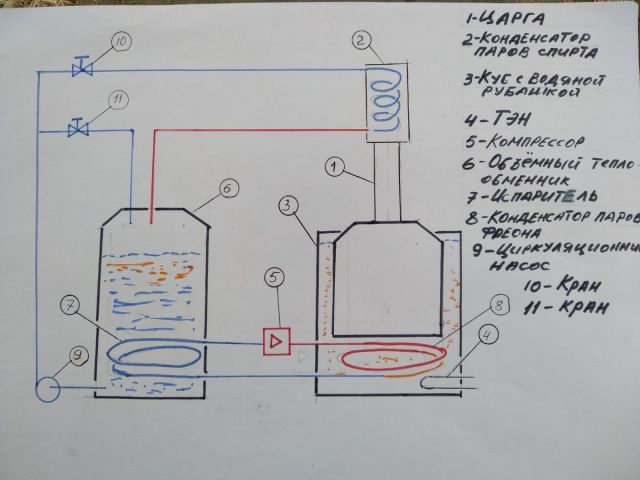 1-ЦАРГА
2-КОНДЕНСАТОР
ПАРОВ СПИРТА
3-КУБ С ВОДЯНОЙ
РУБАШКОЙ
4-ТЭН
5-КОМПРЕССОР
6-ОБЪЁМНЫЙ ТЕПЛО-
ОБМЕННИК
7-ИСПАРИТЕЛЬ
8-КОНДЕНСАТОР ПАРОВ
ФРЕОНА
9-ЦИРКУЛЯЦИОННЫЙ
НАСОС
10-КРАН
11-КРАН
10
2
11
1
6
3
5
7
8
4
9